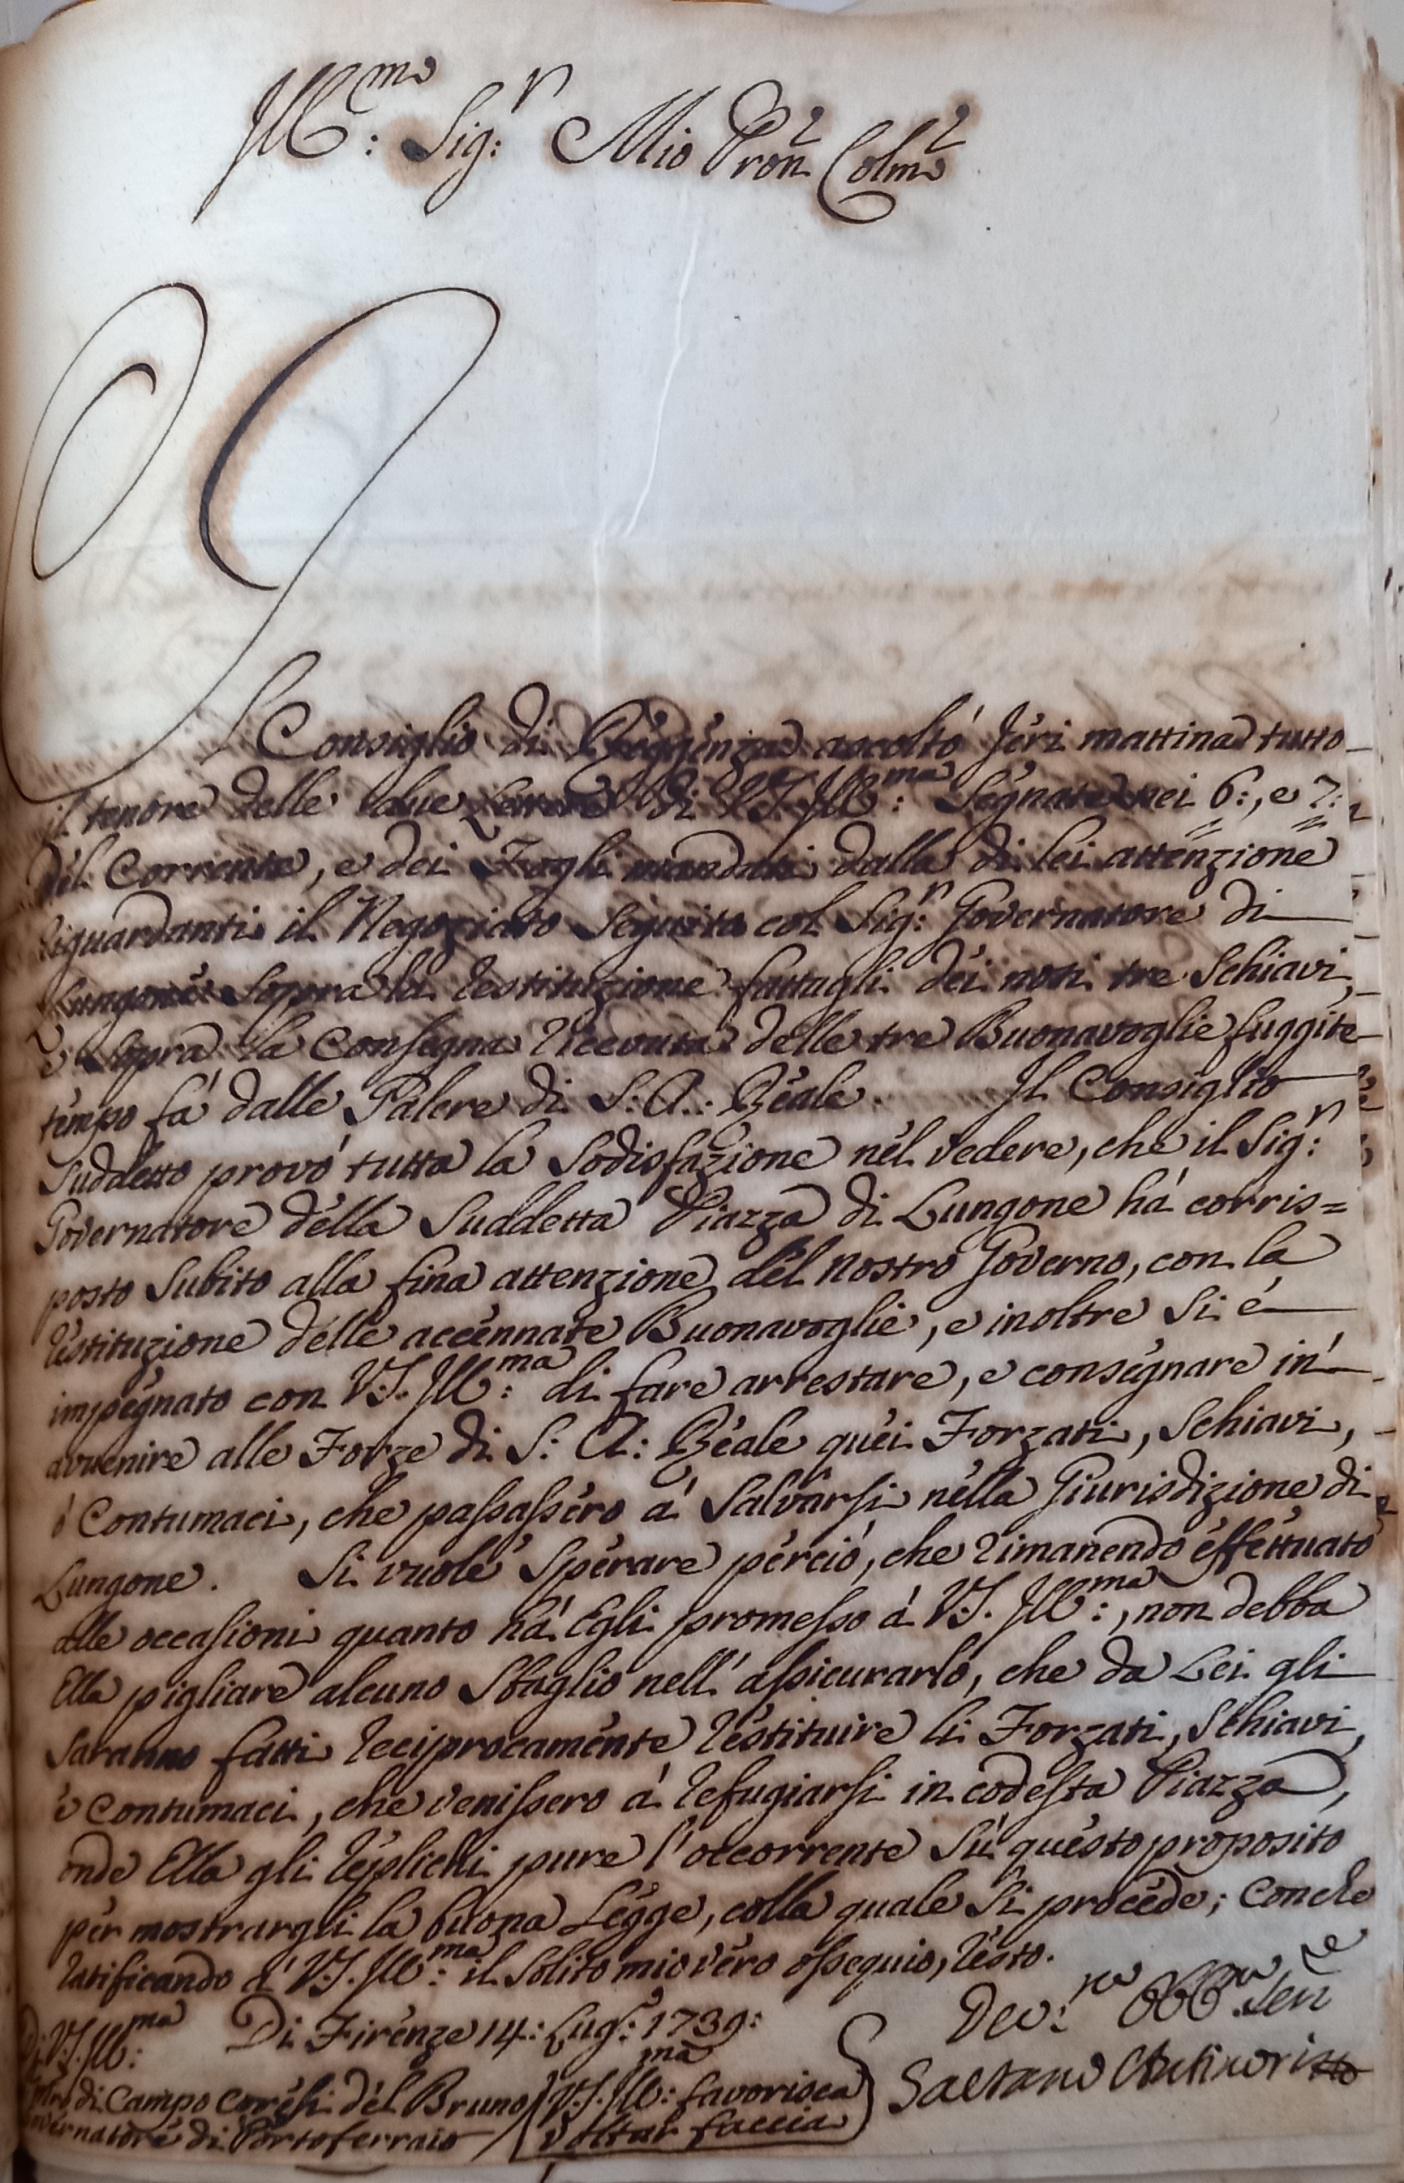 Ill:mo Sig:r Mio Pron Colmo
Il Consiglio di Reggenza ascoltò Jeri mattina tutto
il tenore delle due Lettere di V.S. Ill:ma Segnate nei 6:, e 7:
del Corrente, e dei Fogli mandati dalla di lei attenzione
riguardanti il Negoziato Seguito col Sig:r Governatore di
Lungone Sopra la restituzione fattagli dei noti tre Schiavi,
e Sopra la Consegna ricevuta delle tre Buonavoglie fuggite
tempo fà dalle Palere di S: A: Reale. Il Consiglio
Suddetto provò tutta la Sodisfazione nel vedere, che il Sig:r
Governatore della Suddetta Piazza di Lungone hà corris=
posto Subito alla fina attenzione del nostro Governo, con la
restituzione delle accennate Buonavoglie, e inoltre Si è
impegnato con V.S. Ill:ma di fare arrestare, e consegnare in
avvenire alle Forze di S: A: Reale quei Forzati, Schiavi,
ò Contumaci, che passassero à Salvarsi nella Giurisdizione di
Lungone. Si vuole Sperare perciò, che rimanendo effettuato
alle occasioni quanto hà Egli promesso à V.S. Ill:ma, non debba
Ella pigliare alcuno Sbaglio nell' assicurarlo, che da Lei gli
Saranno fatti reciprocamente restituire li Forzati, Schiavi,
è Contumaci, che venissero à refugiarsi in codesta Piazza,
onde Ella gli replichi pure l'occorrente Sù questo proposito
per mostrargli la buona Legge, colla quale Si procede; Con che
ratificando à V.S. Ill:ma il Solito mio vero ossequio, resto.
Di V.S. Ill:ma Di Firenze 14: Lug: 1739:
Dev:mo Obb:mo Serv:re
di Campo Coresi del Bruno V.S. Ill:ma favorisca
Gaetano Antinori
Governatore di Portoferraio voltar faccia